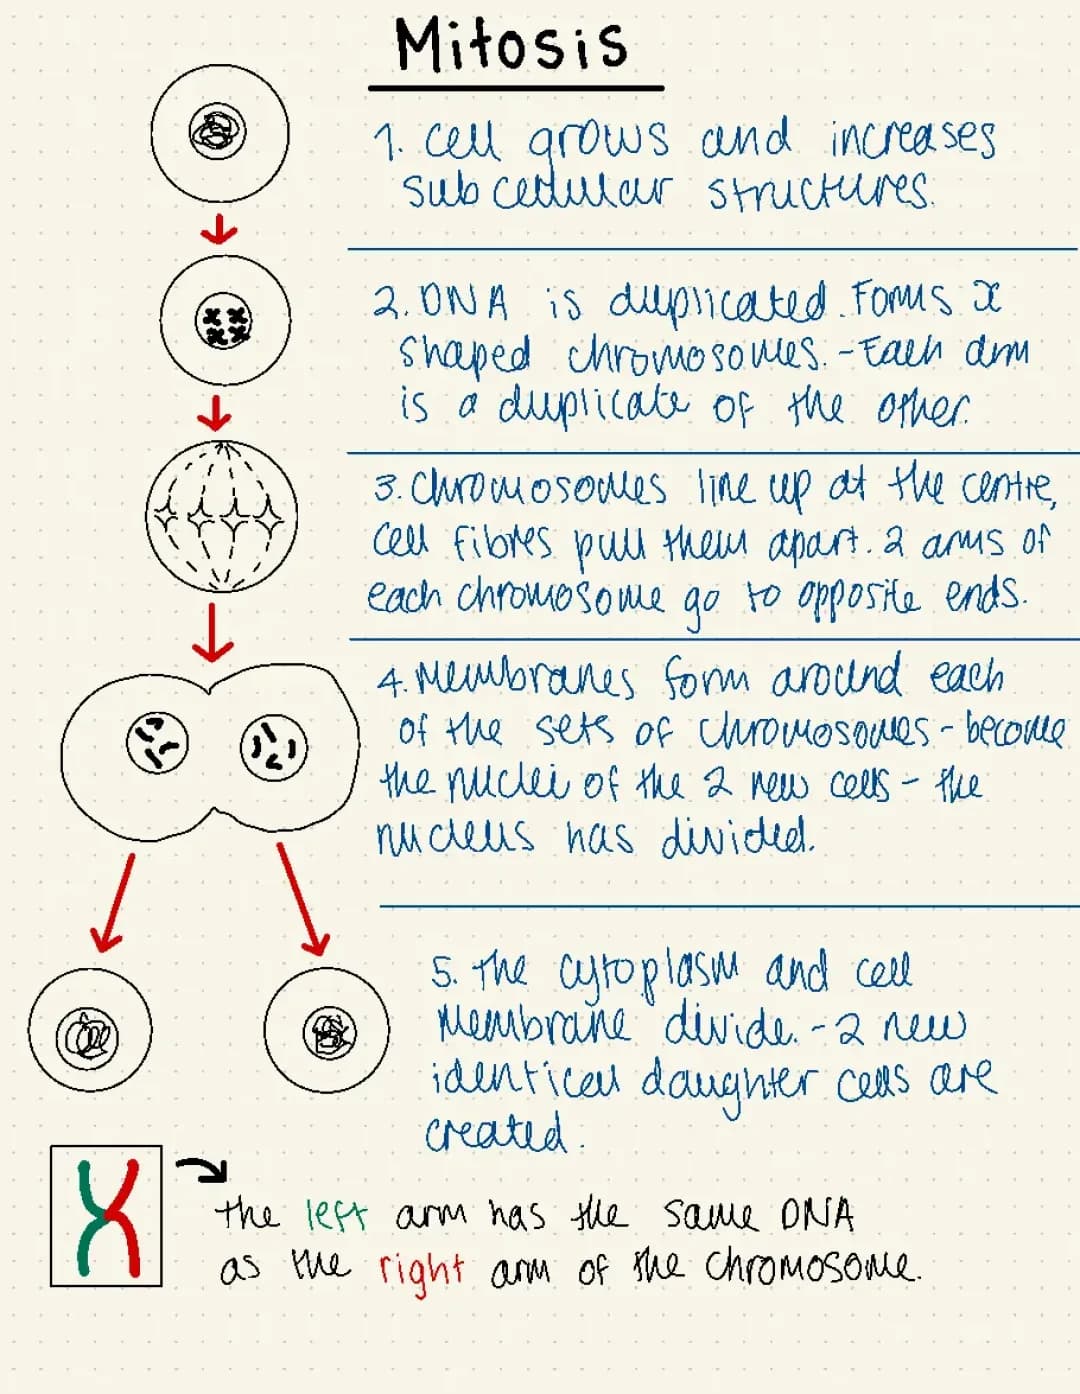 Mitosis
1. Cell grows and increases
subcellular structures.
2. DNA is duplicated. Forms X
shaped chromosomes. - Each arm
is a duplicate of the other.
3. Chromosomes line up at the centre,
cell fibres pull them apart. 2 arms of
each chromosome go to opposite ends.
4. Membranes form around each
of the sets of chromosomes - become
the nuclei of the 2 new cells - the
nucleus has divided.
5. The cytoplasm and cell
Membrane divide. - 2 new
identical daughter cells are
created.
the left arm has the same DNA
as the right arm of the chromosome.